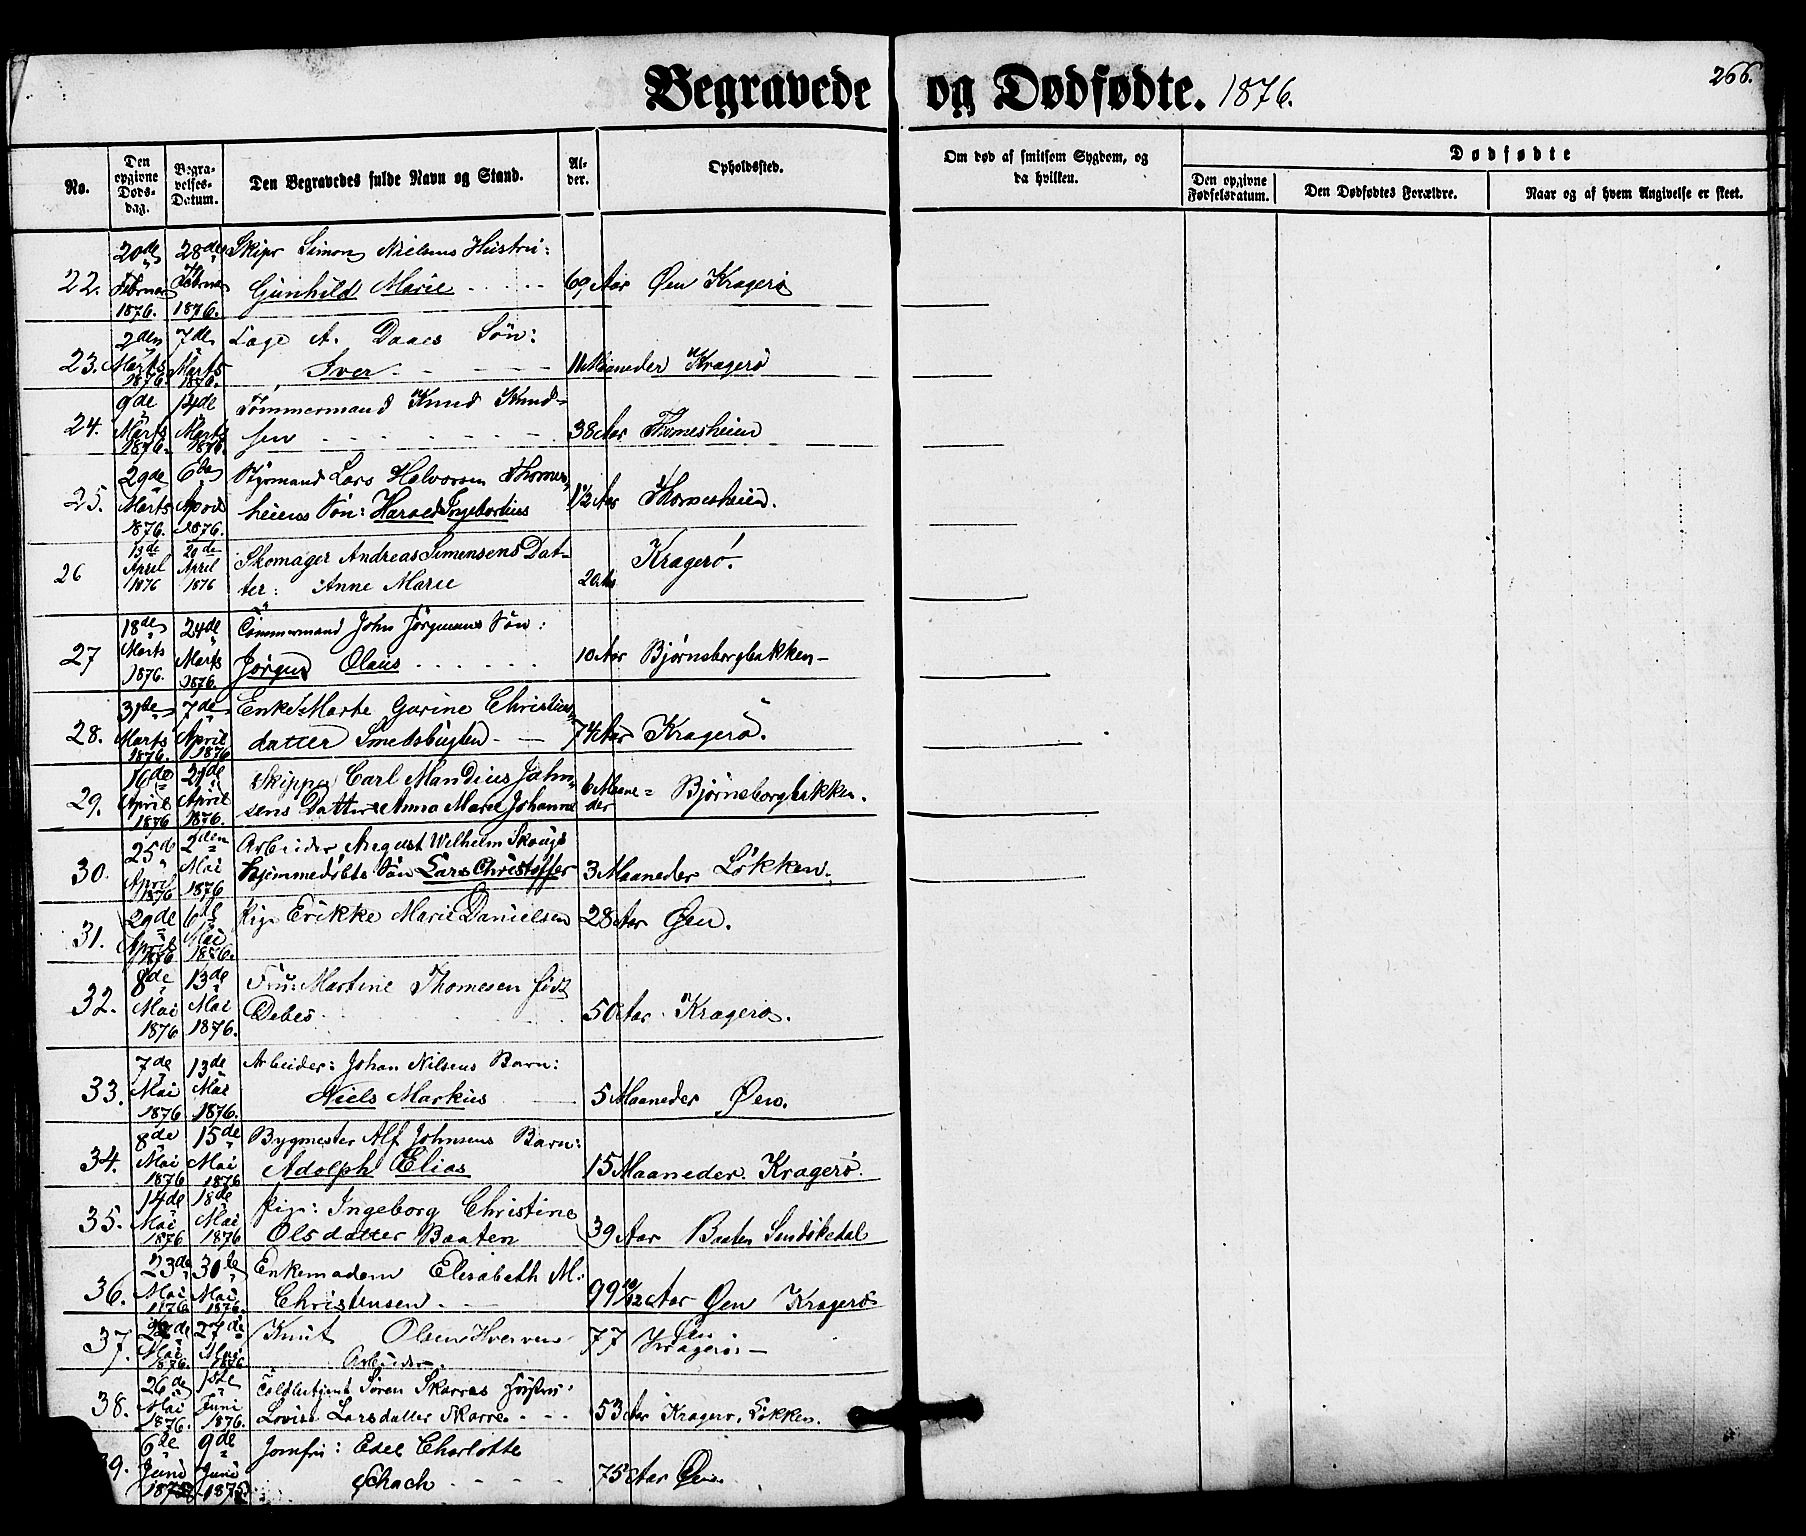 Begravede og Dødfødte. 1876.
266.
No.
Den opgivne Døds-dag.
Begra-velses-Datum.
Den Begravedes fulde Navn og Stand.
Al-der.
Opholdssted.
Om død af smitsom Sygdom, og da hvilken.
Dødfødte
Den opgivne Fødselsdatum.
Den Dødfødtes Forældre.
Naar og af hvem Angivelse er skeet.
22. 20de Februar 1876. 28de Februar 1876. Skipr Simon Nielsens Hustru:
Gunhild Marie 69 Aar Øen Kragerø
23. 2den Marts 1876. 7de Marts 1876. Lage A. Daaes Søn:
Iver 11 Maaneder Kragerø
24. 9de Marts 1876. 14de Marts 1876. Tømmermand Knud Knud=
sen 38 Aar
25. 29de Marts 1876. 6te April 1876. Styrmand Lars Halvorsen
heiens Søn: Harald Ingebortius 1½ Aar
26 13de April 1876 20de April 1876 Skomager Andreas Simensens Dat-
ter: Anne Marie 20 Aar Kragerø.
27 18de Marts 1876. 24de Marts 1876. Tømmermand John Jörgensens Søn:
Jörgen Olaus 10 Aar Bjørnsborgbakken-
28. 31te Marts 1876. 7de April 1876 Enke Marte Gurine Christians
datter Smedsbugten 74 Aar Kragerø.
29. 16de April 1876 21de April 1876. Skipper Carl Mandius Jahn
sens Datter Anna Marie Johanne 6 Maane=der Bjørnsborgbakken.
30. 25de April 1876 2den Mai 1876 Arbeider August Wilhelm Skougs
Hjemmedøbte Søn Lars Christoffer 3 Maaneder Løkken.
31. 29de April 1876 6te Mai 1876. Pige Erikke Marie Danielsen 28 Aar Øen.
32. 8de Mai 1876 13de Mai 1876. Fru: Martine Thomesen født
Debes 50 Aar Kragerø.
33. 7de Mai 1876 13de Mai 1876. Arbeider: Johan Nilsens Barn:
Niels Markus 5 Maaneder Øen.
34. 8de Mai 1876 15de Mai 1876 Bygmester Alf Johnsens Barn:
Adolph Elias 15 Maaneder. Kragerø.
35. 14de Mai 1876 18de Mai 1876 Pige: Ingeborg Christine
Olsdatter Baaten 39 Aar Baaten Sandøkedal
36. 23de Mai 1876 30te Mai 1876. Enkemadam Elisabeth M:
Christensen. 99 10/12 Aar Øen Kragerø
37. Mai 1876. 27de Mai 1876 Knut Olsen
Arbeider. 77 Øen Kragerø-
38. 26de Mai 1876. 1ste Juni 1876. Toldbetjent Søren Skarres Hustru:
Lovise Larsdatter Skarre 53 Aar Kragerø, Løkken.
39. 6de Juni 9de Juni Jomfru: Edel Charlotte
Schach 75 Aar Øen.